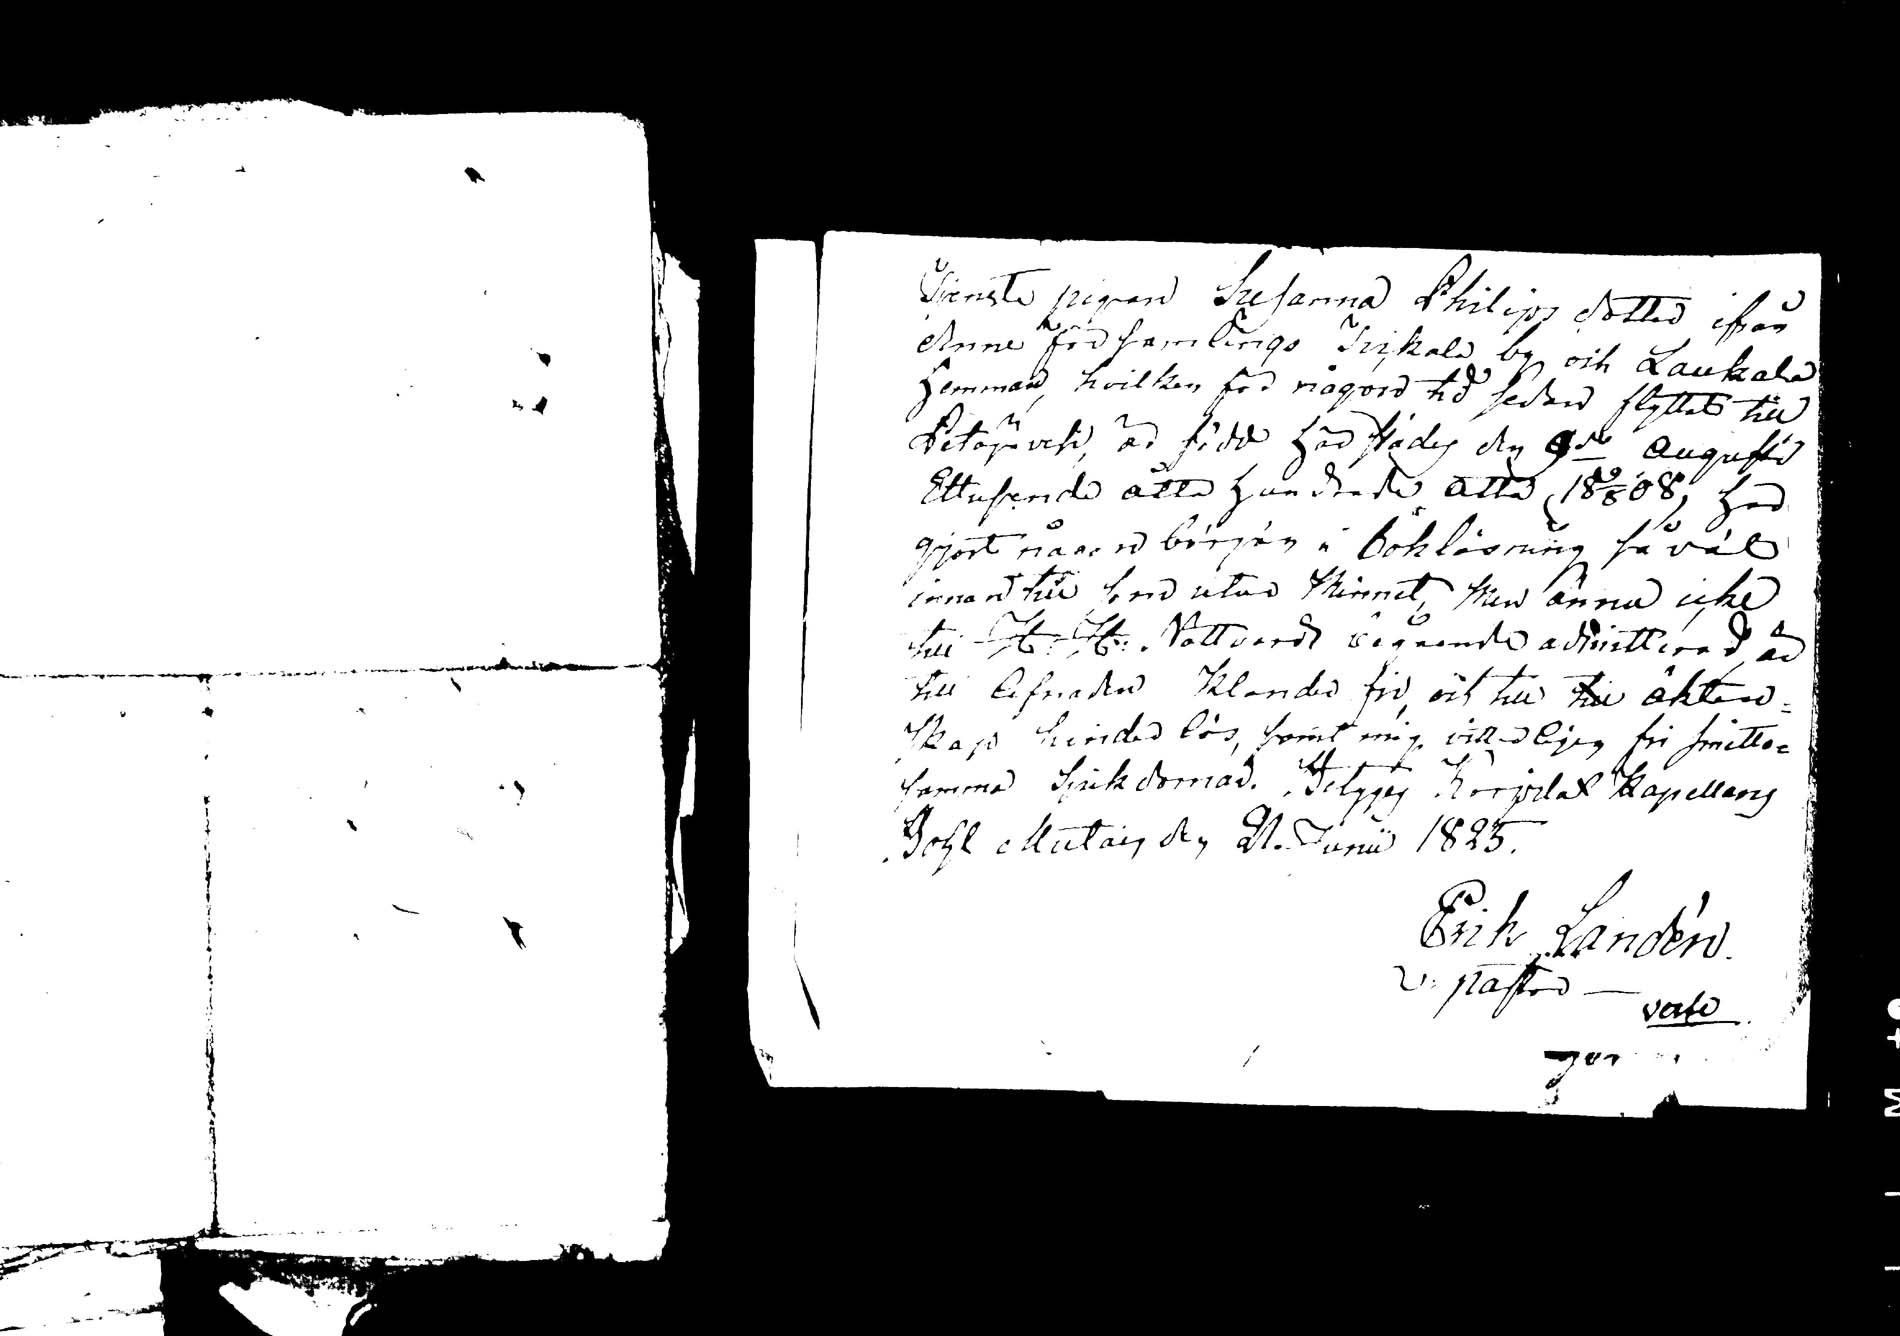 Tjenste pigan Susanna Philips dotter ifrån
denne församlings Inkala by och Laukala
Hemman, hvilken för någon tid sedan flyttat till
Petäjävesi, är född härstädes den 9de Augusti
Ettusende åtta Hundrade åtta (18 9/8 08) har
gjort någon början i Bokläsning så väl
innan till som utur Minnet, men ännu icke
till H. H. Nattvards begående admitterad, är
till lefnaden klander fri, och till till äkten=
skap hinder lös, samt mig vitterligen fri smitto=
samma sjukdomar. Betygas Korpilax Kapellans
Bohl Mutain den 21. Junii 1825.
Erik Landén.
v. pastor —
verte
M